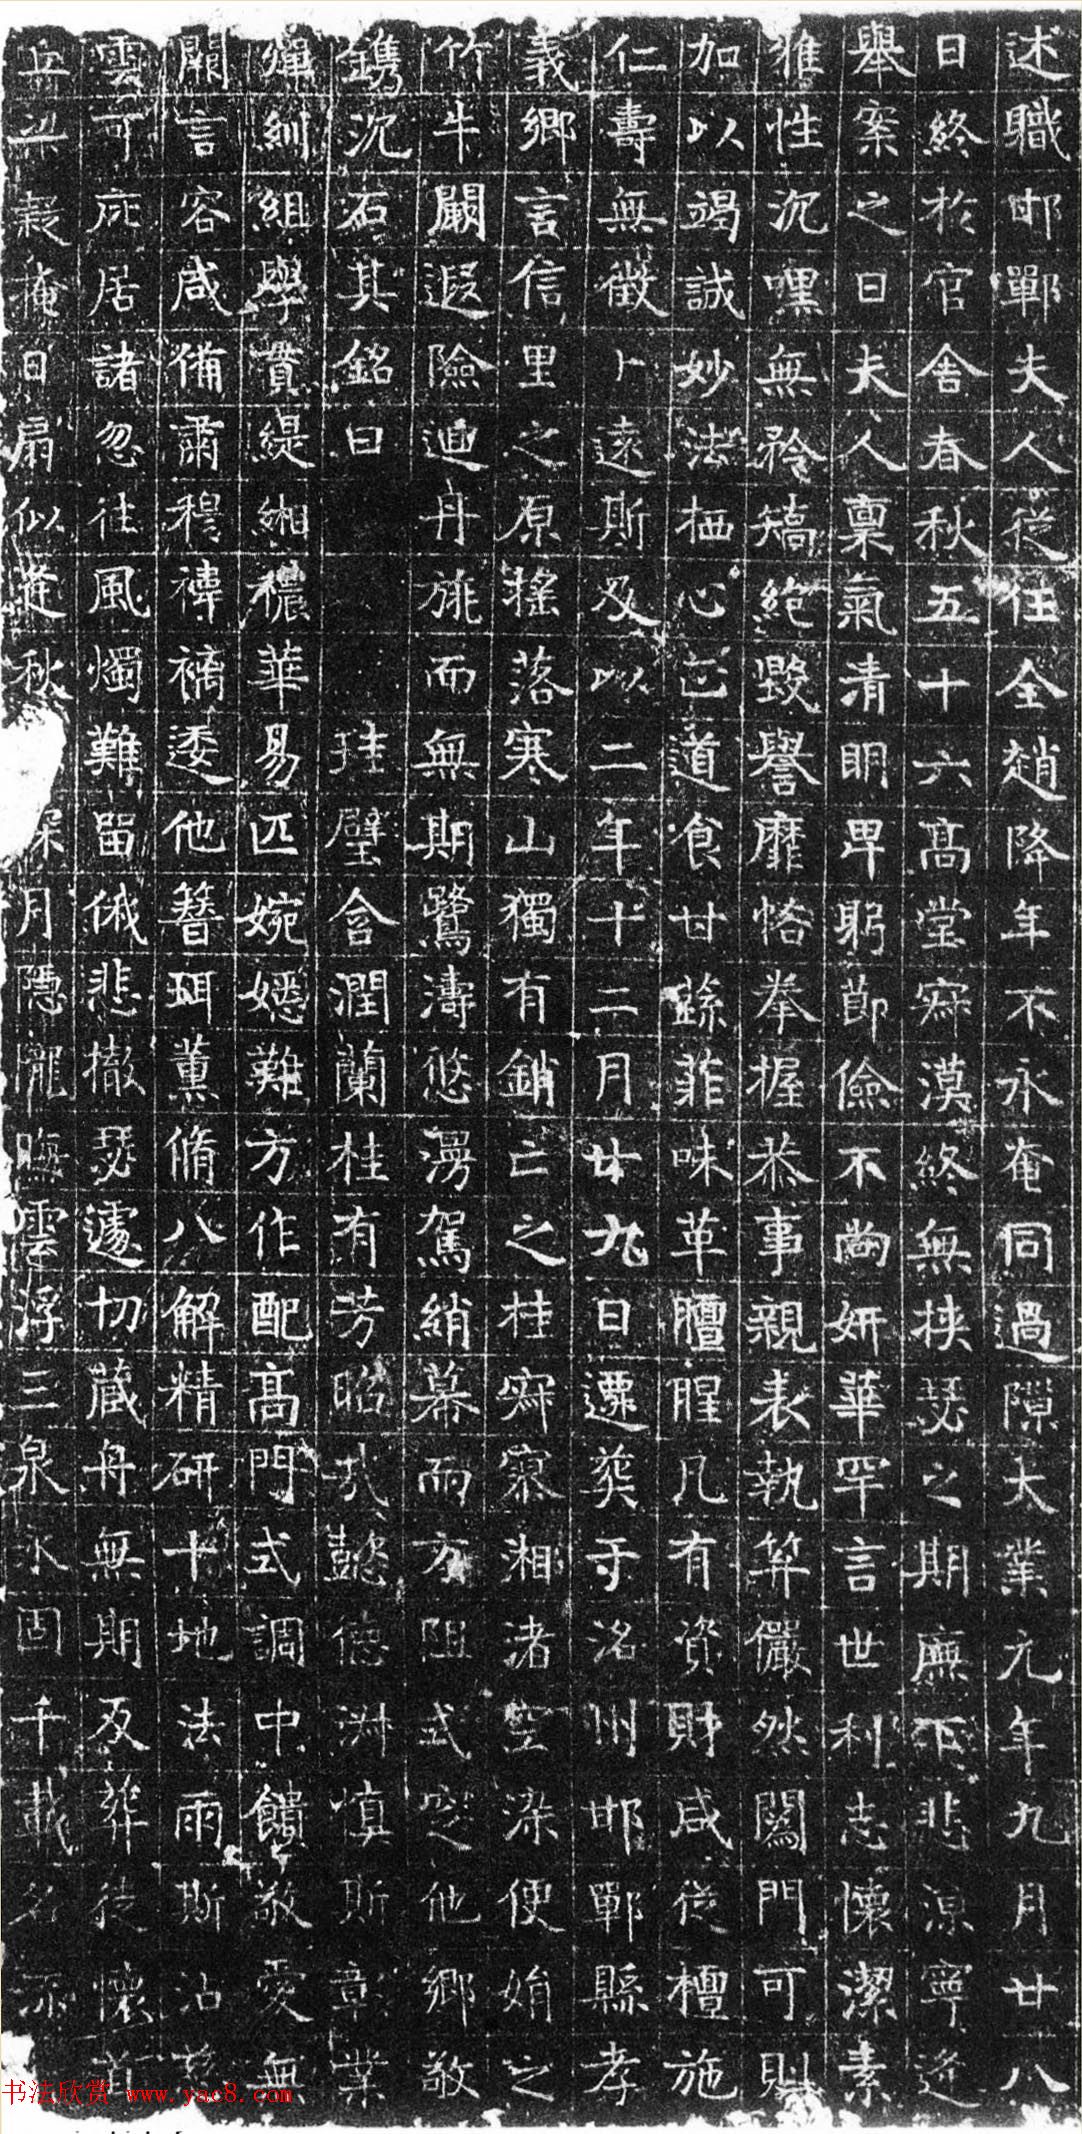 述職邯鄲夫人從任全趙降年不永奄同過隙大業元年九月廿八
日終於官舍春秋五十六高堂寂漠終無挾瑟之期廡下悲涼寧送
舉案之日夫人稟氣清明卑躬節儉不尚妍華罕言世利志懷潔素
雅性沉嘿無矜矯絶毀譽靡悋拳握恭事親表執笄儼然闔門可則
加以竭誠妙法栖心正道食甘蔬菲味革膻腥凡有資財咸從檀施
仁壽無徵卜遠斯及以二年十二月廿九日遷葬于洺州邯鄲縣孝
義鄉言信里之原摇落寒山獨有銷亡之桂寂寥湘渚空染便娟之
竹牛闞遐險迴丹旐而無期鷺濤悠湯駕綃幕而方阻式窆他鄉敬
鐫沉石其銘曰 珪璧含潤蘭桂有芳昭哉懿德淋慎斯彰業
殫紃組學貫緹緗穠華易匹婉嫕難方作配高門式調中饋敬愛無
闕言容咸備肅穆褘褕逶他簪珥薰脩八解精研十地法雨斯沾
雲可庇居諸忽往風燭難留俄悲撤瑟遽切藏舟無期反葬徒懷首
丘 掩日扃似 秋 月隱瀧晦雲浮三泉永固千載名不
书法欣赏 www.yac8.com